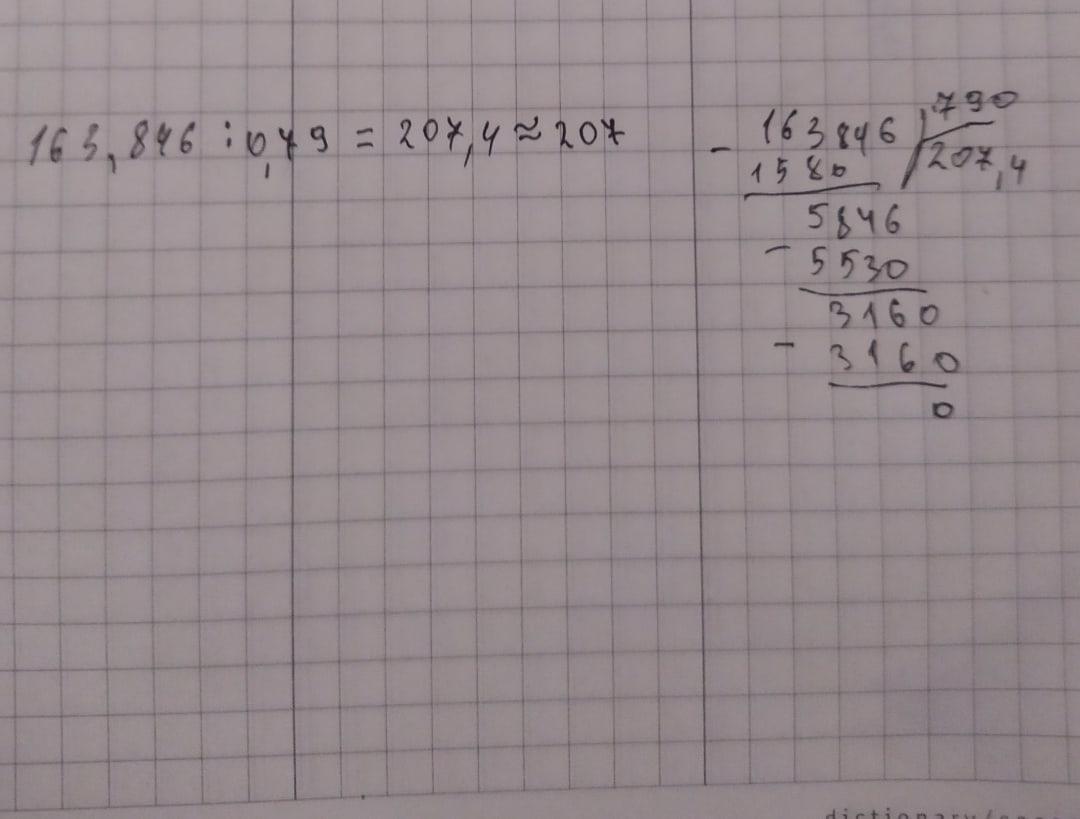 163,846 : 0,79 = 207,4 ≈ 207
- 163846 790
1580 207,4
5846
- 5530
3160
- 3160
0